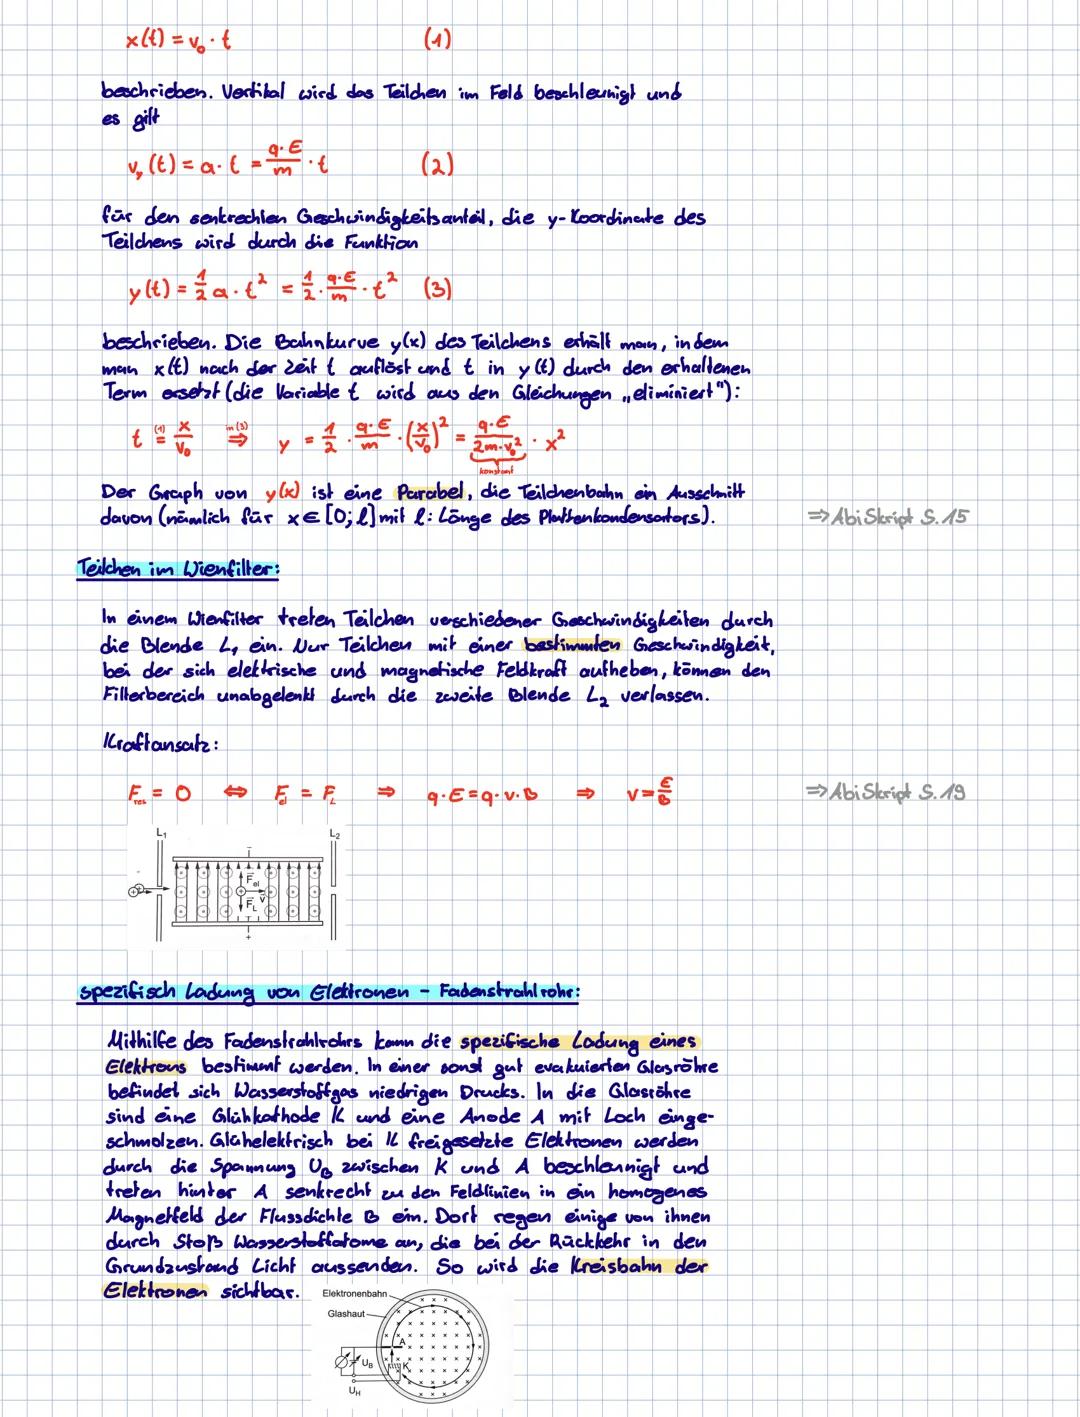 x(t) = v₀ · t (1)
beschrieben. Vertikal wird das Teilchen im Feld beschleunigt und
es gilt
v_y (t) = a · t = q·E/m · t (2)
für den senkrechten Geschwindigkeitsanteil, die y-Koordinate des
Teilchens wird durch die Funktion
y(t) = 1/2 a · t² = 1/2 · q·E/m · t² (3)
beschrieben. Die Bahnkurve y(x) des Teilchens erhält man, indem
man x(t) nach der Zeit t auflöst und t in y(t) durch den erhaltenen
Term ersetzt (die Variable t wird aus den Gleichungen „eliminiert"):
t =(1) x/v₀ ⇒ in (3) y = 1/2 · q·E/m · (x/v₀)² = q·E/2m·v₀² · x²
konstant
Der Graph von y(x) ist eine Parabel, die Teilchenbahn ein Ausschnitt
davon (nämlich für x ∈ [0; l] mit l: Länge des Plattenkondensators). ⇒ AbiSkript S. 15
Teilchen im Wienfilter:
In einem Wienfilter treten Teilchen verschiedener Geschwindigkeiten durch
die Blende L₁ ein. Nur Teilchen mit einer bestimmten Geschwindigkeit,
bei der sich elektrische und magnetische Feldkraft aufheben, können den
Filterbereich unabgelenkt durch die zweite Blende L₂ verlassen.
Kraftansatz:
F_res = 0 ⇔ F_el = F_L ⇒ q·E = q·v·B ⇒ v = E/B ⇒ AbiSkript S. 19
L₁ L₂
F_el
v
F_L
spezifisch Ladung von Elektronen – Fadenstrahlrohr:
Mithilfe des Fadenstrahlrohrs kann die spezifische Ladung eines
Elektrons bestimmt werden. In einer sonst gut evakuierten Glasröhre
befindet sich Wasserstoffgas niedrigen Drucks. In die Glasröhre
sind eine Glühkathode K und eine Anode A mit Loch einge-
schmolzen. Glühelektrisch bei K freigesetzte Elektronen werden
durch die Spannung U_B zwischen K und A beschleunigt und
treten hinter A senkrecht zu den Feldlinien in ein homogenes
Magnetfeld der Flussdichte B ein. Dort regen einige von ihnen
durch Stoß Wasserstoffatome an, die bei der Rückkehr in den
Grundzustand Licht aussenden. So wird die Kreisbahn der
Elektronen sichtbar.
Elektronenbahn
Glashaut
A
U_B K
U_H